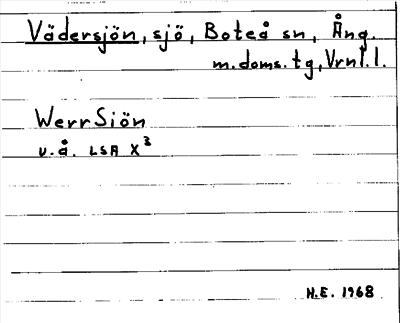 Vädersjön, sjö, Boteå sn, Ång.
m.doms.tg, Vrnl.l.
WerrSiön
u.å. LSA X³
H.E. 1968